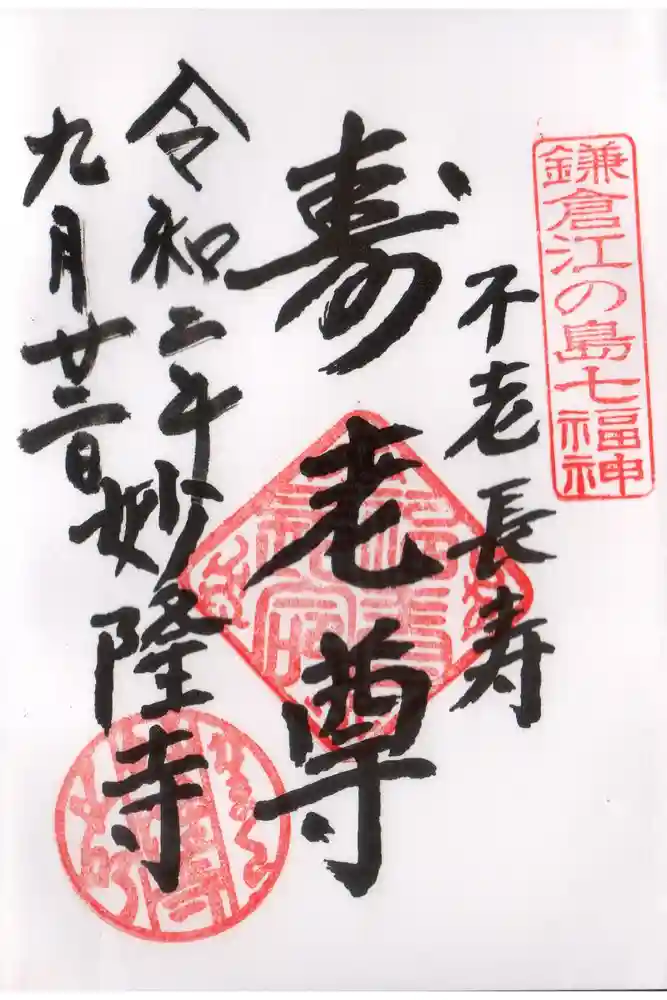 鎌倉江の島七福神
不老長寿
寿老尊
令和二年
妙隆寺
九月廿二日